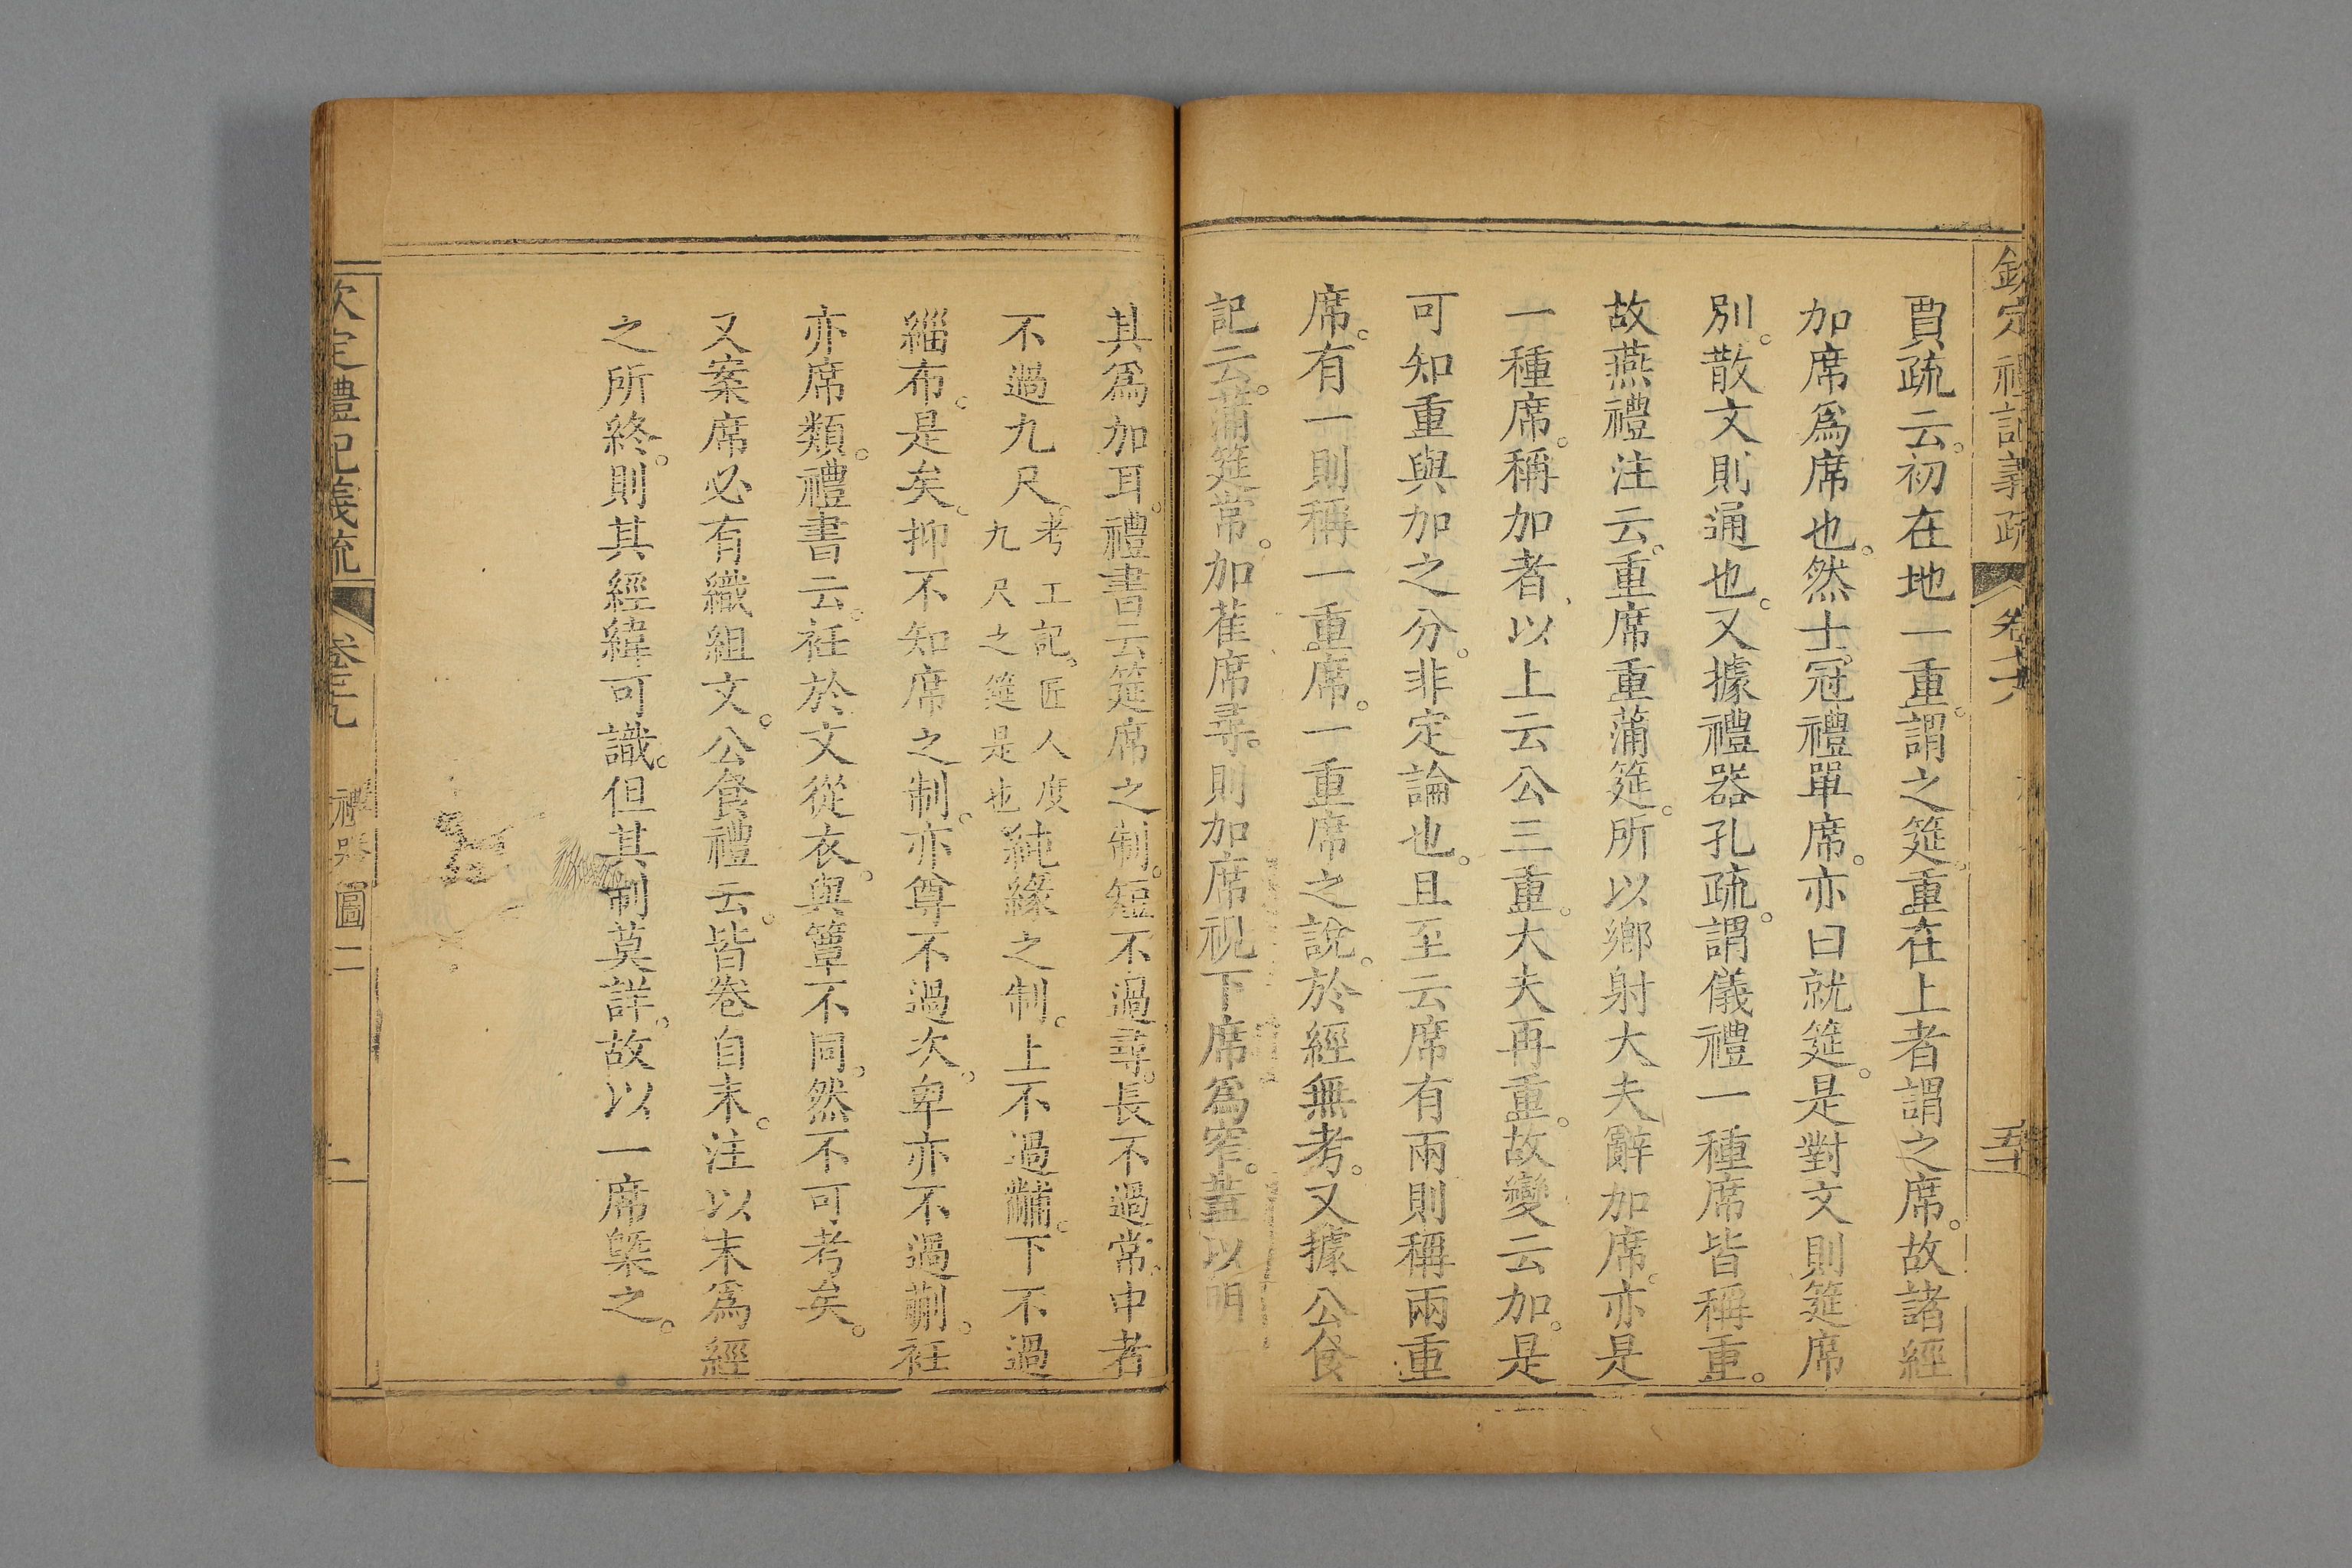 欽定禮記義疏 卷 五
賈疏云。初在地一重。謂之筵。重在上者謂之席。故諸經
加席爲席也。然士冠禮單席。亦曰就筵。是對文則筵席
別。散文則通也。又據禮器孔疏。謂儀禮一種席皆稱重。
故燕禮注云。重席重蒲筵。所以鄉射大夫辭加席。亦是
一種席。稱加者、以上云公三重。大夫再重。故變云加。是
可知重與加之分。非定論也。且至云席有兩則稱兩重
席。有一則稱一重席。一重席之說。於經無考。又據公食
記云。蒲筵常。加萑席尋。則加席視下席爲窄。蓋以明
其爲加耳。禮書云筵席之制。短不過尋。長不過常。中者
不過九尺。考工記。匠人度九尺之筵是也純緣之制。上不過黼。下不過
緇布。是矣。抑不知席之制。亦尊不過次。卑亦不過蒯。衽
亦席類。禮書云。衽於文從衣。與簟不同。然不可考矣。
又案席必有織組文。公食禮云。皆卷自末。注以末爲經
之所終。則其經緯可識。但其制莫詳。故以一席槩之。
欽定禮記義疏 禮器圖二